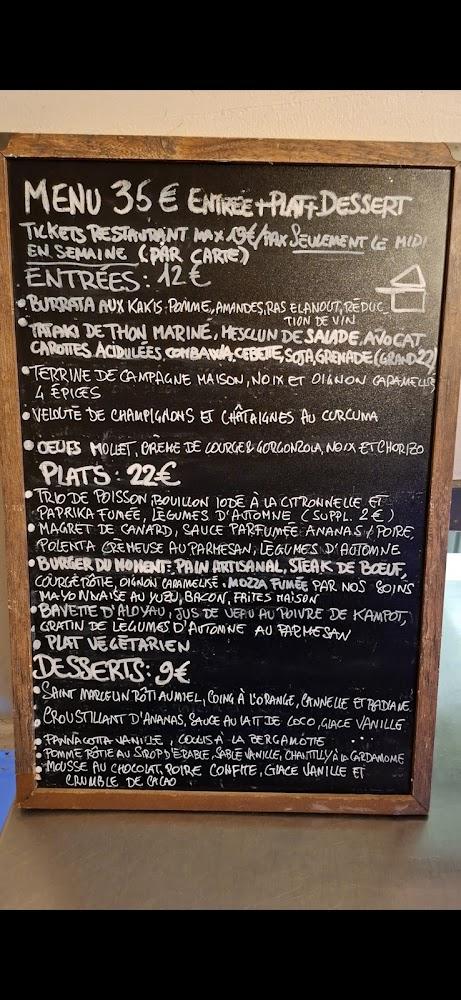 MENU 35 € ENTRÉE + PLAT + DESSERT
TICKETS RESTAURANT MAX 19€/MAX SEULEMENT LE MIDI
EN SEMAINE (PAR CARTE)
ENTRÉES: 12€
• BURRATA AUX KAKIS, POMME, AMANDES, RAS EL ANOUT, RÉDUC
TION DE VIN
• TATAKI DE THON MARINÉ, MESCLUN DE SALADE, AVOCAT
CAROTTES ACIDULÉES, COMBAWA, CEBETTE, SOJA, GRENADE (GRAND 22)
• TERRINE DE CAMPAGNE MAISON, NOIX ET OIGNON CARAMELISE
4 ÉPICES
• VELOUTE DE CHAMPIGNONS ET CHÂTAIGNES AU CURCUMA
• OEUFS MOLLET, CRÈME DE COURGE & GORGONZOLA, NOIX ET CHORIZO
PLATS: 22€
• TRIO DE POISSON, BOUILLON IODÉ À LA CITRONNELLE ET
PAPRIKA FUMÉE, LÉGUMES D'AUTOMNE (SUPPL. 2€)
• MAGRET DE CANARD, SAUCE PARFUMÉE ANANAS / POIRE,
POLENTA CRÈMEUSE AU PARMESAN, LÉGUMES D'AUTOMNE
• BURGER DU MOMENT: PAIN ARTISANAL, STEAK DE BOEUF,
COURGE RÔTIE, OIGNON CARAMELISÉ, MOZZA FUMÉE PAR NOS SOINS
MAYONNAISE AU YUZU, BACON, FRITES MAISON
• BAVETTE D'ALOYAU, JUS DE VEAU AU POIVRE DE KAMPOT,
GRATIN DE LEGUMES D'AUTOMNE AU PARMESAN
• PLAT VEGETARIEN
DESSERTS: 9€
• SAINT MARCELLIN RÔTI AU MIEL, COING À L'ORANGE, CANNELLE ET BADIANE
• CROUSTILLANT D'ANANAS, SAUCE AU LAIT DE COCO, GLACE VANILLE
• PANNACOTTA VANILLE, COULIS À LA BERGAMOTE
• POMME RÔTIE AU SIROP D'ÉRABLE, SABLÉ VANILLE, CHANTILLY À LA CARDAMOME
• MOUSSE AU CHOCOLAT, POIRE CONFITE, GLACE VANILLE ET
CRUMBLE DE CACAO